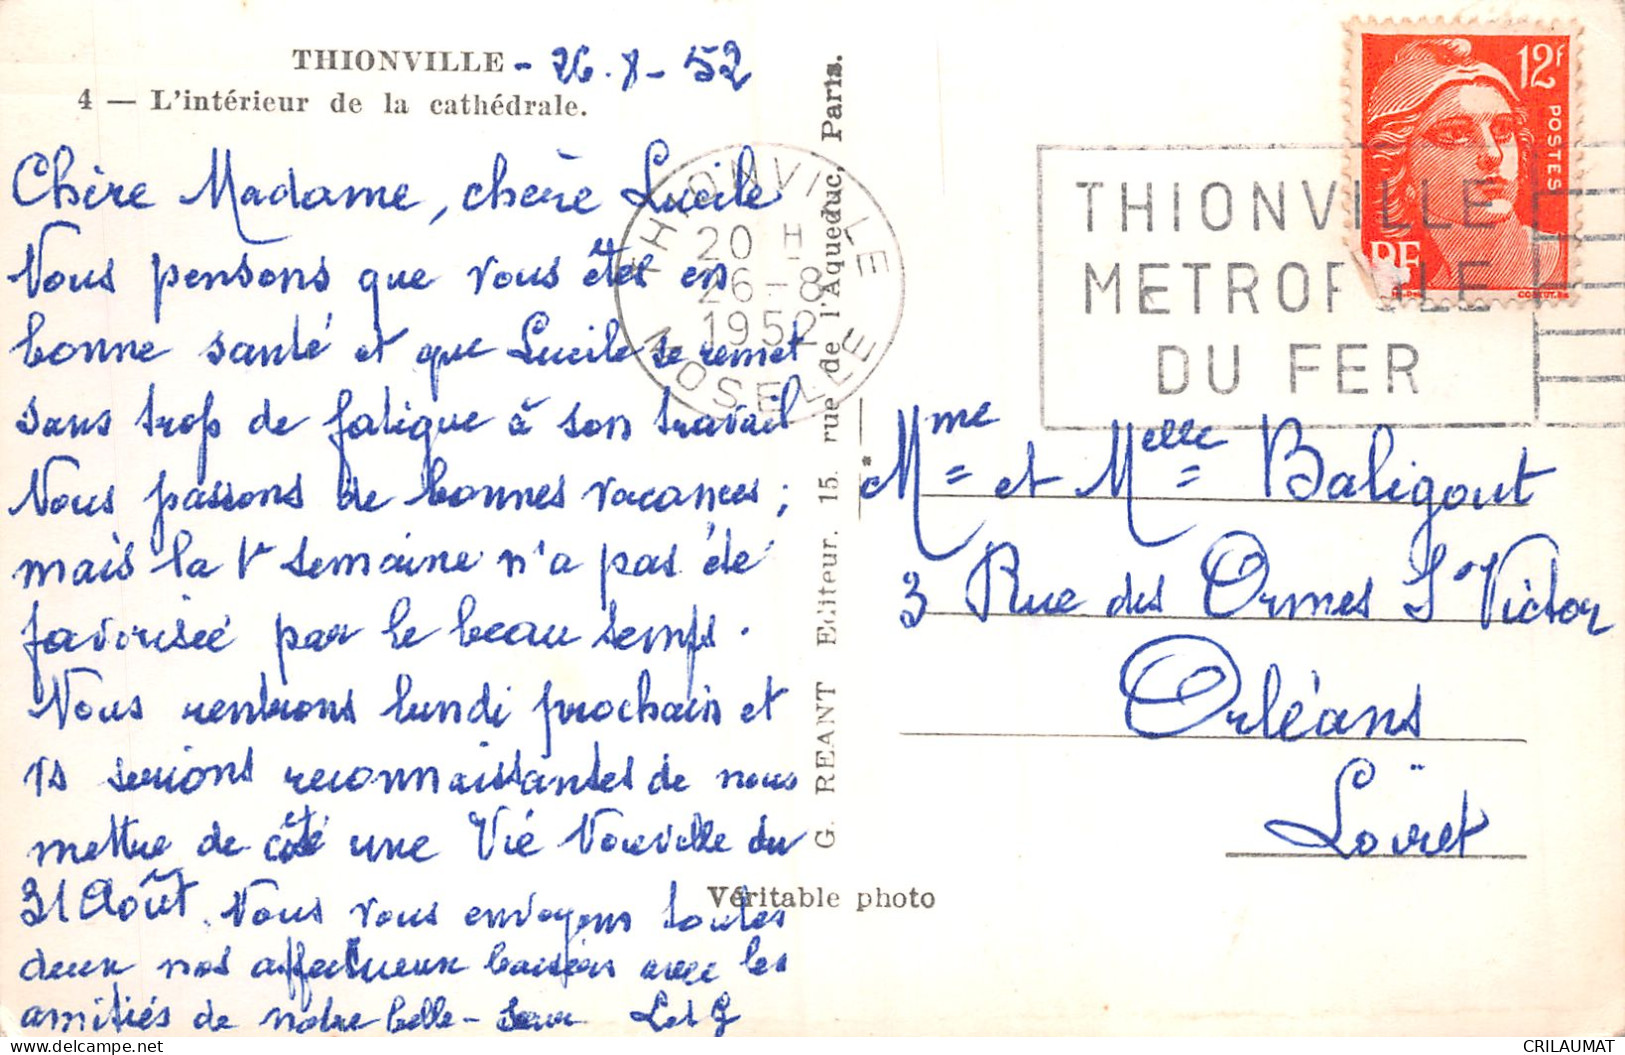 THIONVILLE - 26.8-52
4 — L'intérieur de la cathédrale.
Chère Madame, chère Lucile
Nous pensons que vous êtes en
bonne santé et que Lucile se remet
sans trop de fatigue à son travail
Nous passons de bonnes vacances ;
mais la 1r semaine n'a pas été
favorisée par le beau temps.
Nous rentrons lundi prochain et
ns serions reconnaissantes de nous
mettre de côté une Vie Nouvelle du
31 Août. Nous vous envoyons toutes
deux nos affectueux baisers avec les
amitiés de notre belle-sœur L et G
THIONVILLE
20 H
26-8
1952
MOSELLE
G. REANT Editeur. 15. rue de l'Aqueduc, Paris.
Véritable photo
12F
POSTES
RF
THIONVILLE
METROPOLE
DU FER
Mme et Melle Baligout
3 Rue des Ormes St Victor
Orléans
Loiret
CRILAUMAT